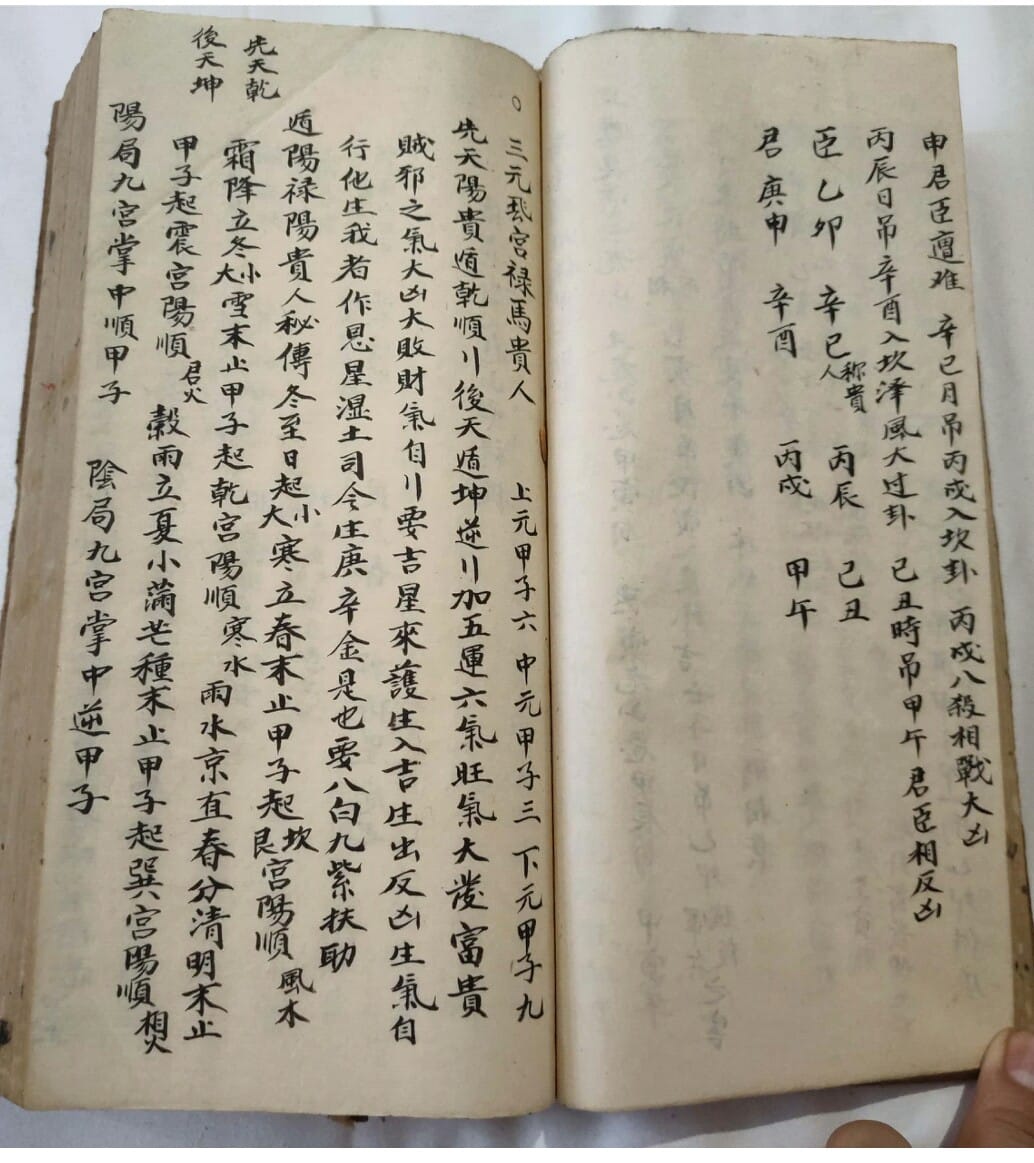 申君臣遭难　辛巳月吊丙戌入坎卦　丙戌八殺相戰大凶
丙辰日吊辛酉入坎泽風大过卦　己丑時吊甲午君臣相反凶
臣乙卯　辛巳人称貴　丙辰　己丑
君庚申　辛酉　丙戌　甲午
○三元飛宮禄馬貴人　上元甲子六　中元甲子三　下元甲子九
先天陽貴遁乾順川後天遁坤逆川加五運六氣旺氣大發富貴
賊邪之氣大凶大敗財氣自川要吉星來護生入吉生出反凶生氣自
行他生我者作恩星湿土司令生庚辛金是也要八白九紫扶助
遁陽禄陽貴人秘傳冬至日起小大寒立春末止甲子起坎艮宮陽順風木
霜降立冬小大雪末止甲子起乾宮陽順寒水　雨水京直春分清明末止
甲子起震宮陽順君火　穀雨立夏小蒲芒種末止甲子起巽宮陽順相火
陽局九宮掌中順甲子　陰局九宮掌中逆甲子
先天乾
後天坤